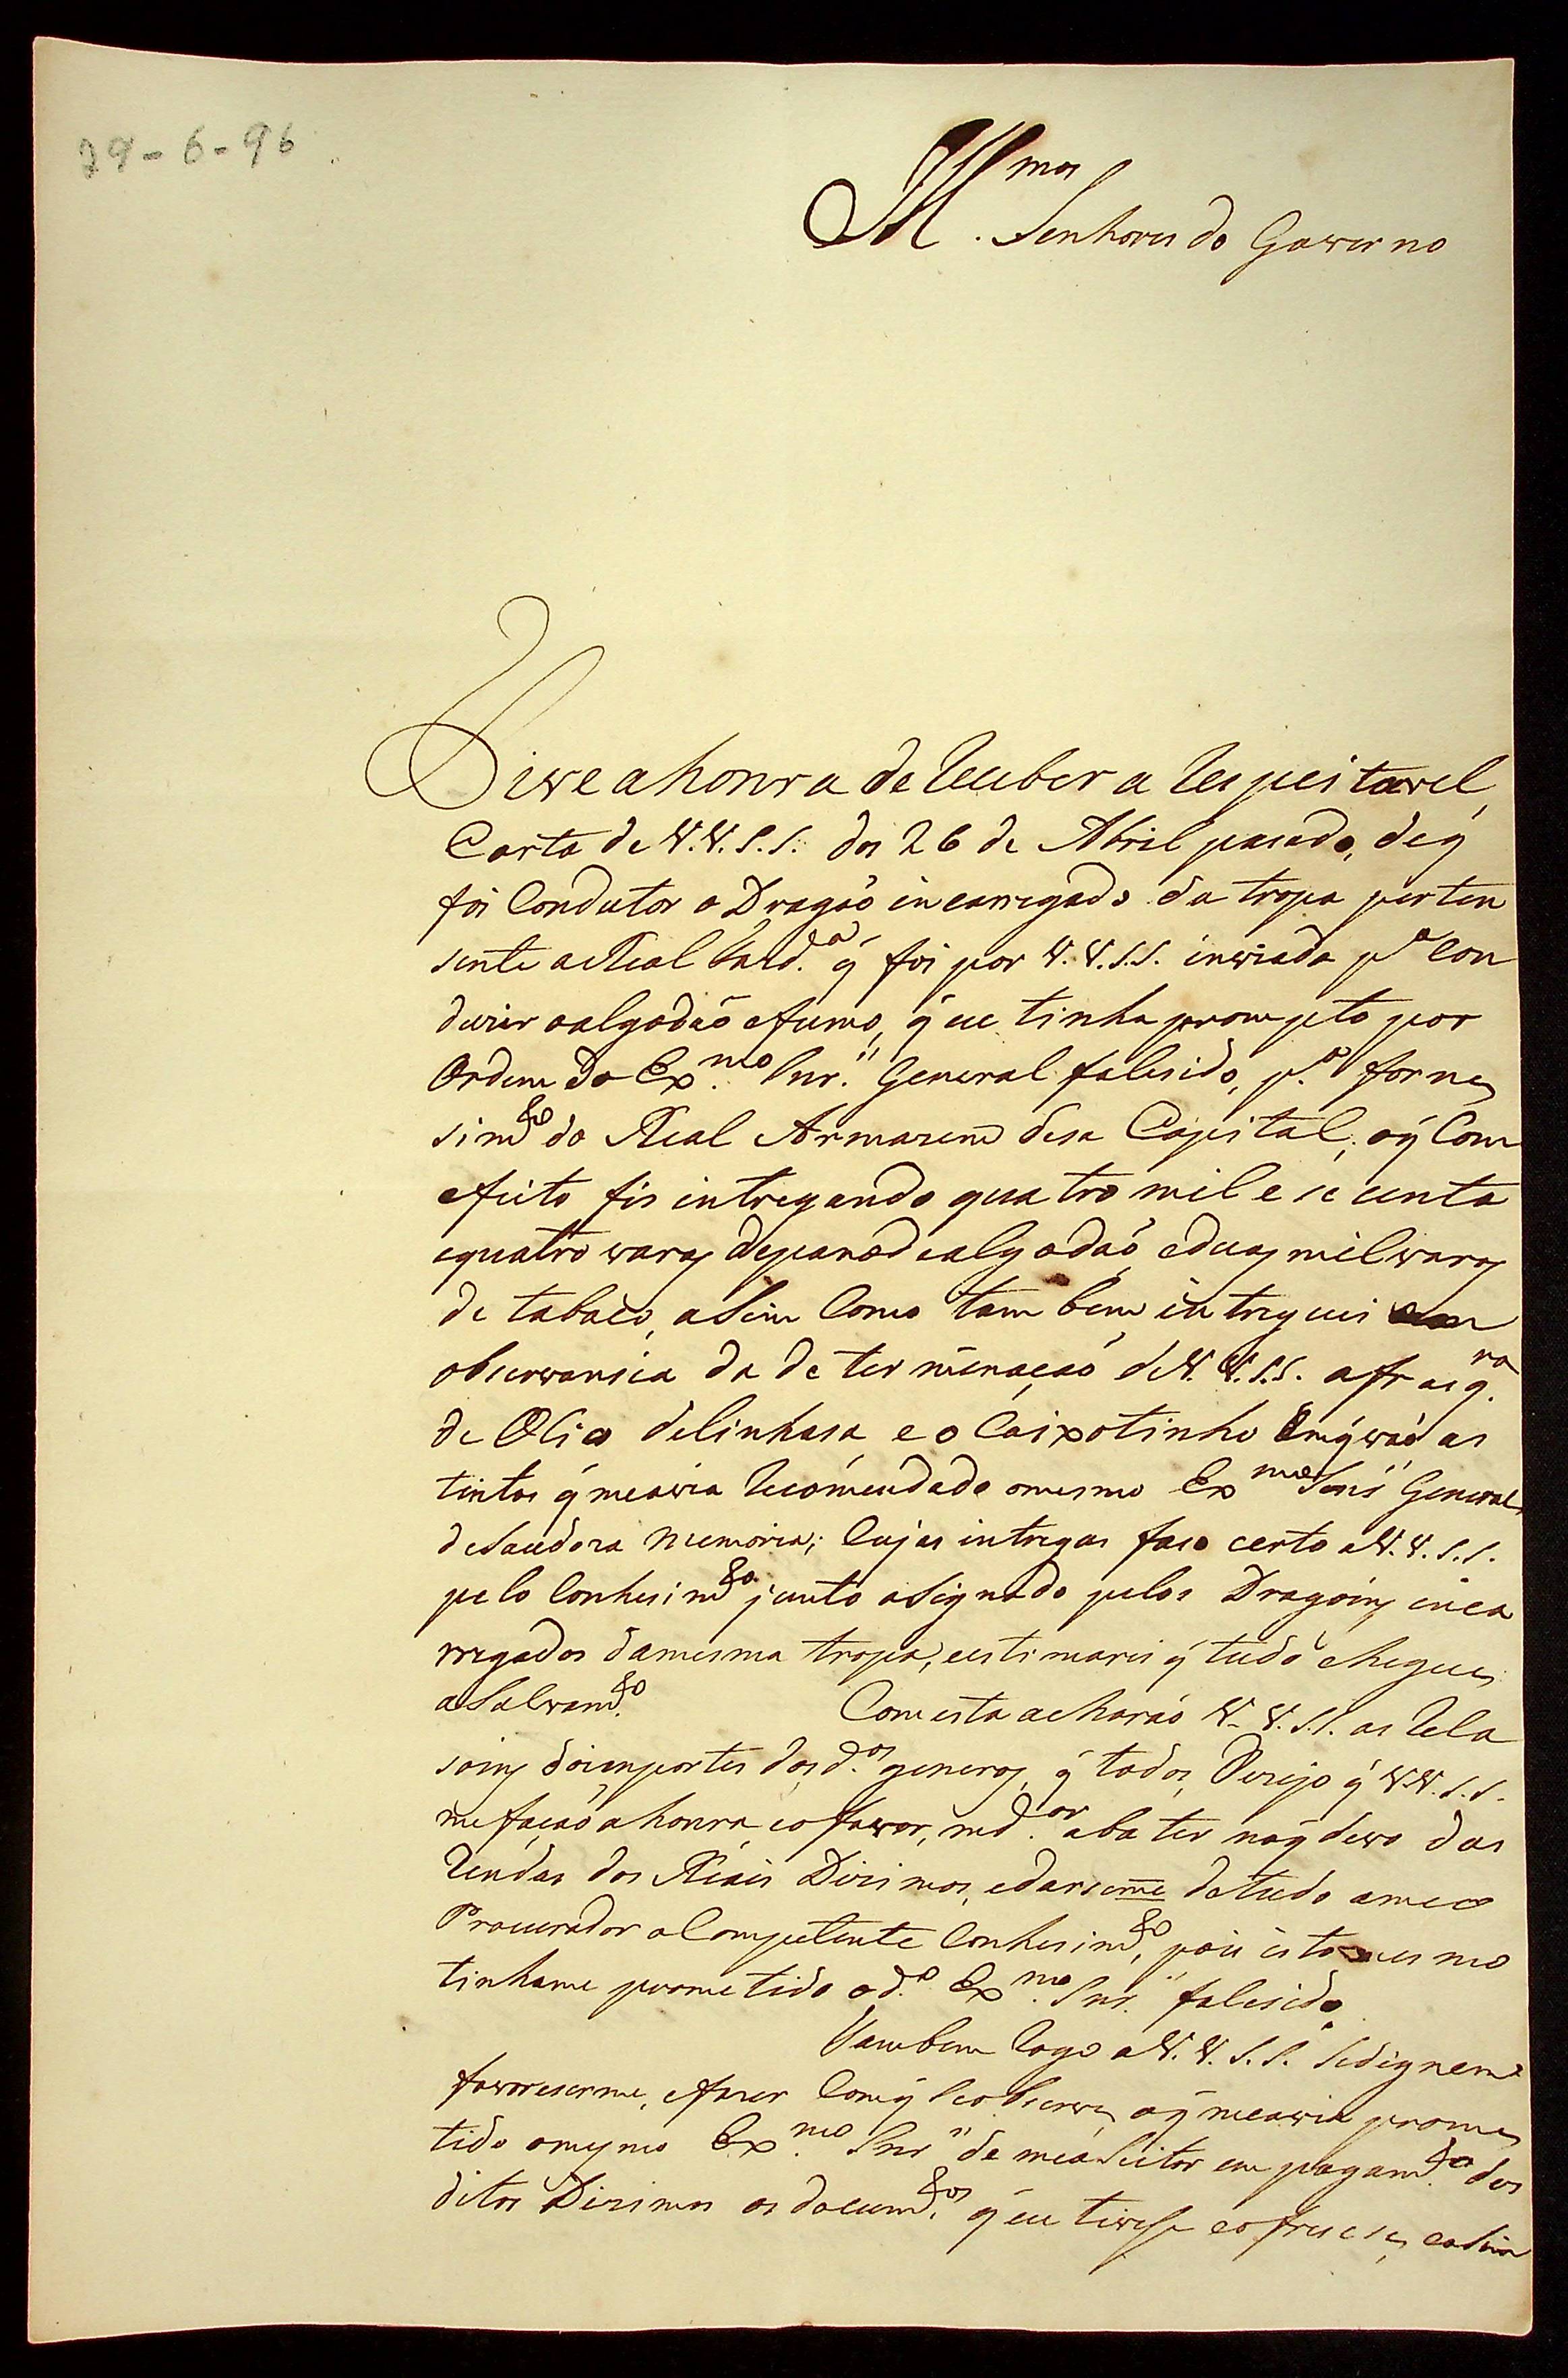 29-6-96
Ill.mos Senhores do Gowerno
Tiwe a honra de Receber a Respeitawel
Carta de W.W.S.S. dos 26 de Abril pasado, de q̃
foi Condutor o Dragaõ incarregado da tropa perten
sente a Real Fazd.ª q̃ foi por W.W.S.S. inwiada p.ª Con
duzir o algodaõ e fumo, q̃ eu tinha prompto por
Ordem do Ex.mo Snr." General falesido, p.ª fornes
simd.to do Real Armazem desa Capital, o q̃ Com
efeito fis intregando quatro mil e secenta
e quatro waras de pano de algodaõ, e duas mil waras
de tabaco, aSim Como tambem intreguei em
observansia da determinaçaõ de W.W.S.S. a frasq.ra
de Olio de linhasa, e o Caixotinho Em q̃ waõ as
tintas q̃ me awia Recomendado o mesmo Ex.mo Snr." General
de Saudoza memoria; Cujas intregas faso certo a W.W.S.S.
pelo Conhesimd.to junto aSignado pelos Dragoins inca
rregados da mesma tropa, e estimarei q̃ tudo chegue
a Salwamd.to Com esta acharaõ W.W.S.S. as Rela
soins dos importes dos d.os generos, q̃ todos Dezejo q̃ W.W.S.S.
me façaõ a honra, e o fawor, md.ar abater no q̃ dewo das
Rendas dos Reais Dizimos, e darseme de tudo a meo
Procurador o Competente Conhesimd.to, pois isto mesmo
tinhame prometido o d.º Ex.mo Snr." falesido.
Tambem Rogo a W.W.S.S. Se dignem
faworeserme, e fazer Com q̃ Se obserwe, o q̃ me awia prome
tido o mesmo Ex.mo Snr" de me aSeitar em pagamd.to dos
ditos Dizimos os documd.tos q̃ eu tiwese e ofresese, e aSim